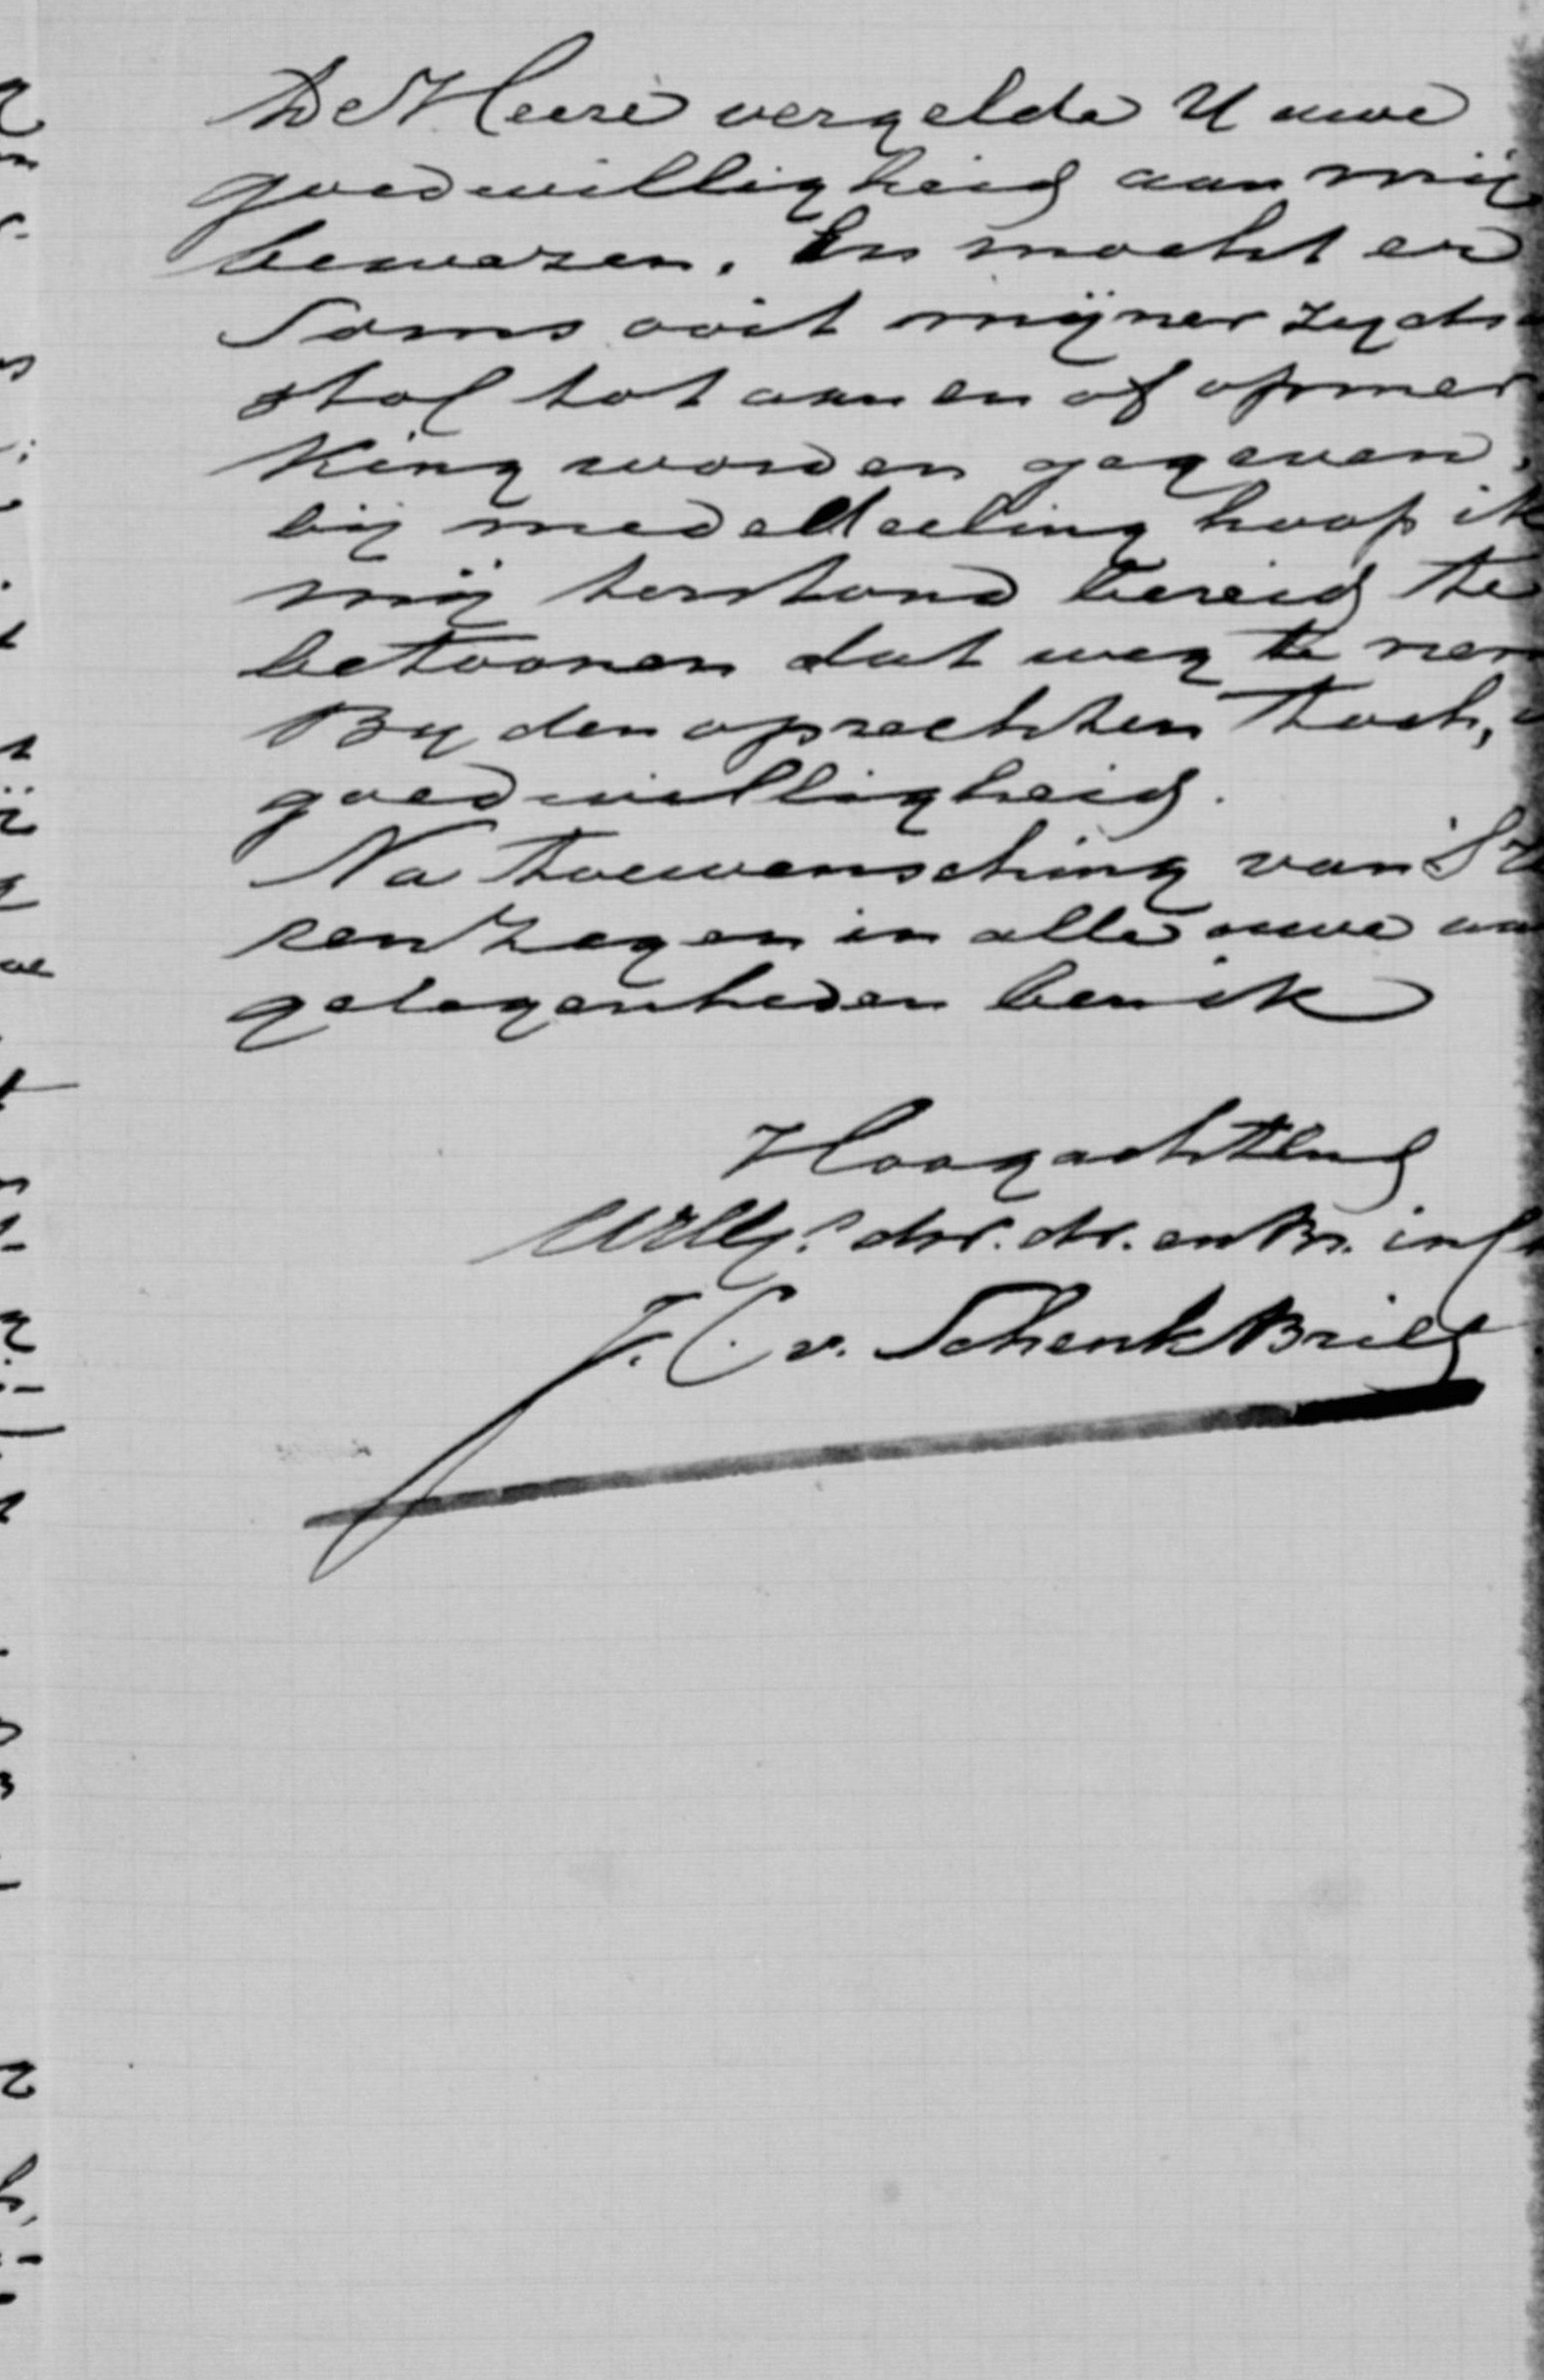 De Heere vergelde U uwe
goedwilligheid aan mij
bewezen. En mocht er
Soms ooit mijner zyds
stof tot aan en of opmer
king worden gegeven,
bij mededeeling hoop ik
mij terstond bereid te
betoonen dat weg te nem
By den oprechten toch,
goedwilligheid.
Na toewensching van 's
ren Zegen in alle uwe aan
gelegenheden ben ik
Hoogachtend
UWEly. dw. dr. en Br. in
J. C. v. Schenk Brill